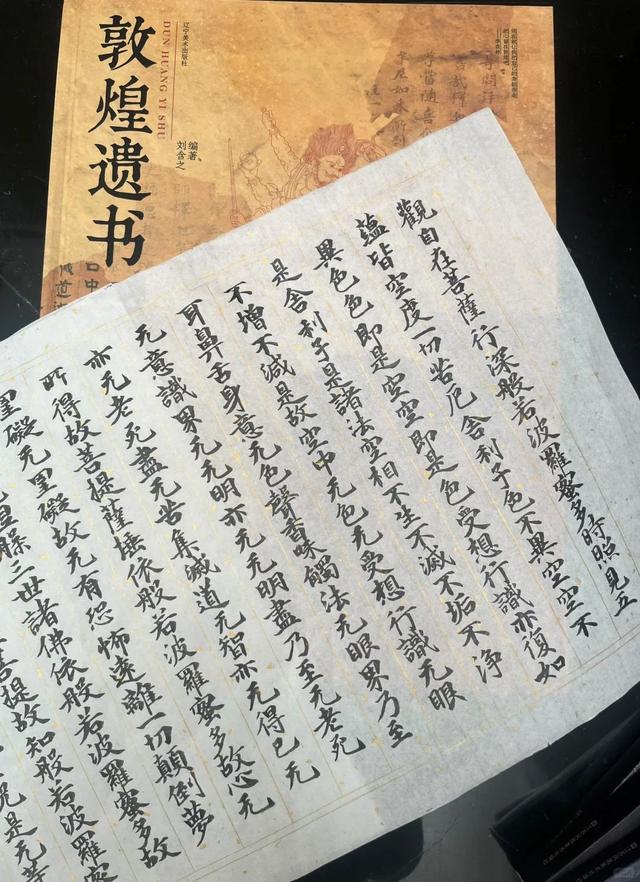 敦煌遗书
DUN HUANG YI SHU
辽宁美术出版社
刘含之
编著
觀自在菩薩行深般若波羅蜜多時照見五
蘊皆空度一切苦厄舍利子色不異空空不
異色色即是空空即是色受想行識亦復如
是舍利子是諸法空相不生不滅不垢不淨
不增不減是故空中无色无受想行識无眼
耳鼻舌身意无色聲香味觸法无眼界乃至
无意識界无无明亦无无明盡乃至无老死
亦无老死盡无苦集滅道无智亦无得已无
所得故菩提薩埵依般若波羅蜜多故心无
罣礙无罣礙故无有恐怖遠離一切顛倒夢
三世諸佛依般若波羅蜜多故
菩提故知般若波羅蜜
咒是无等